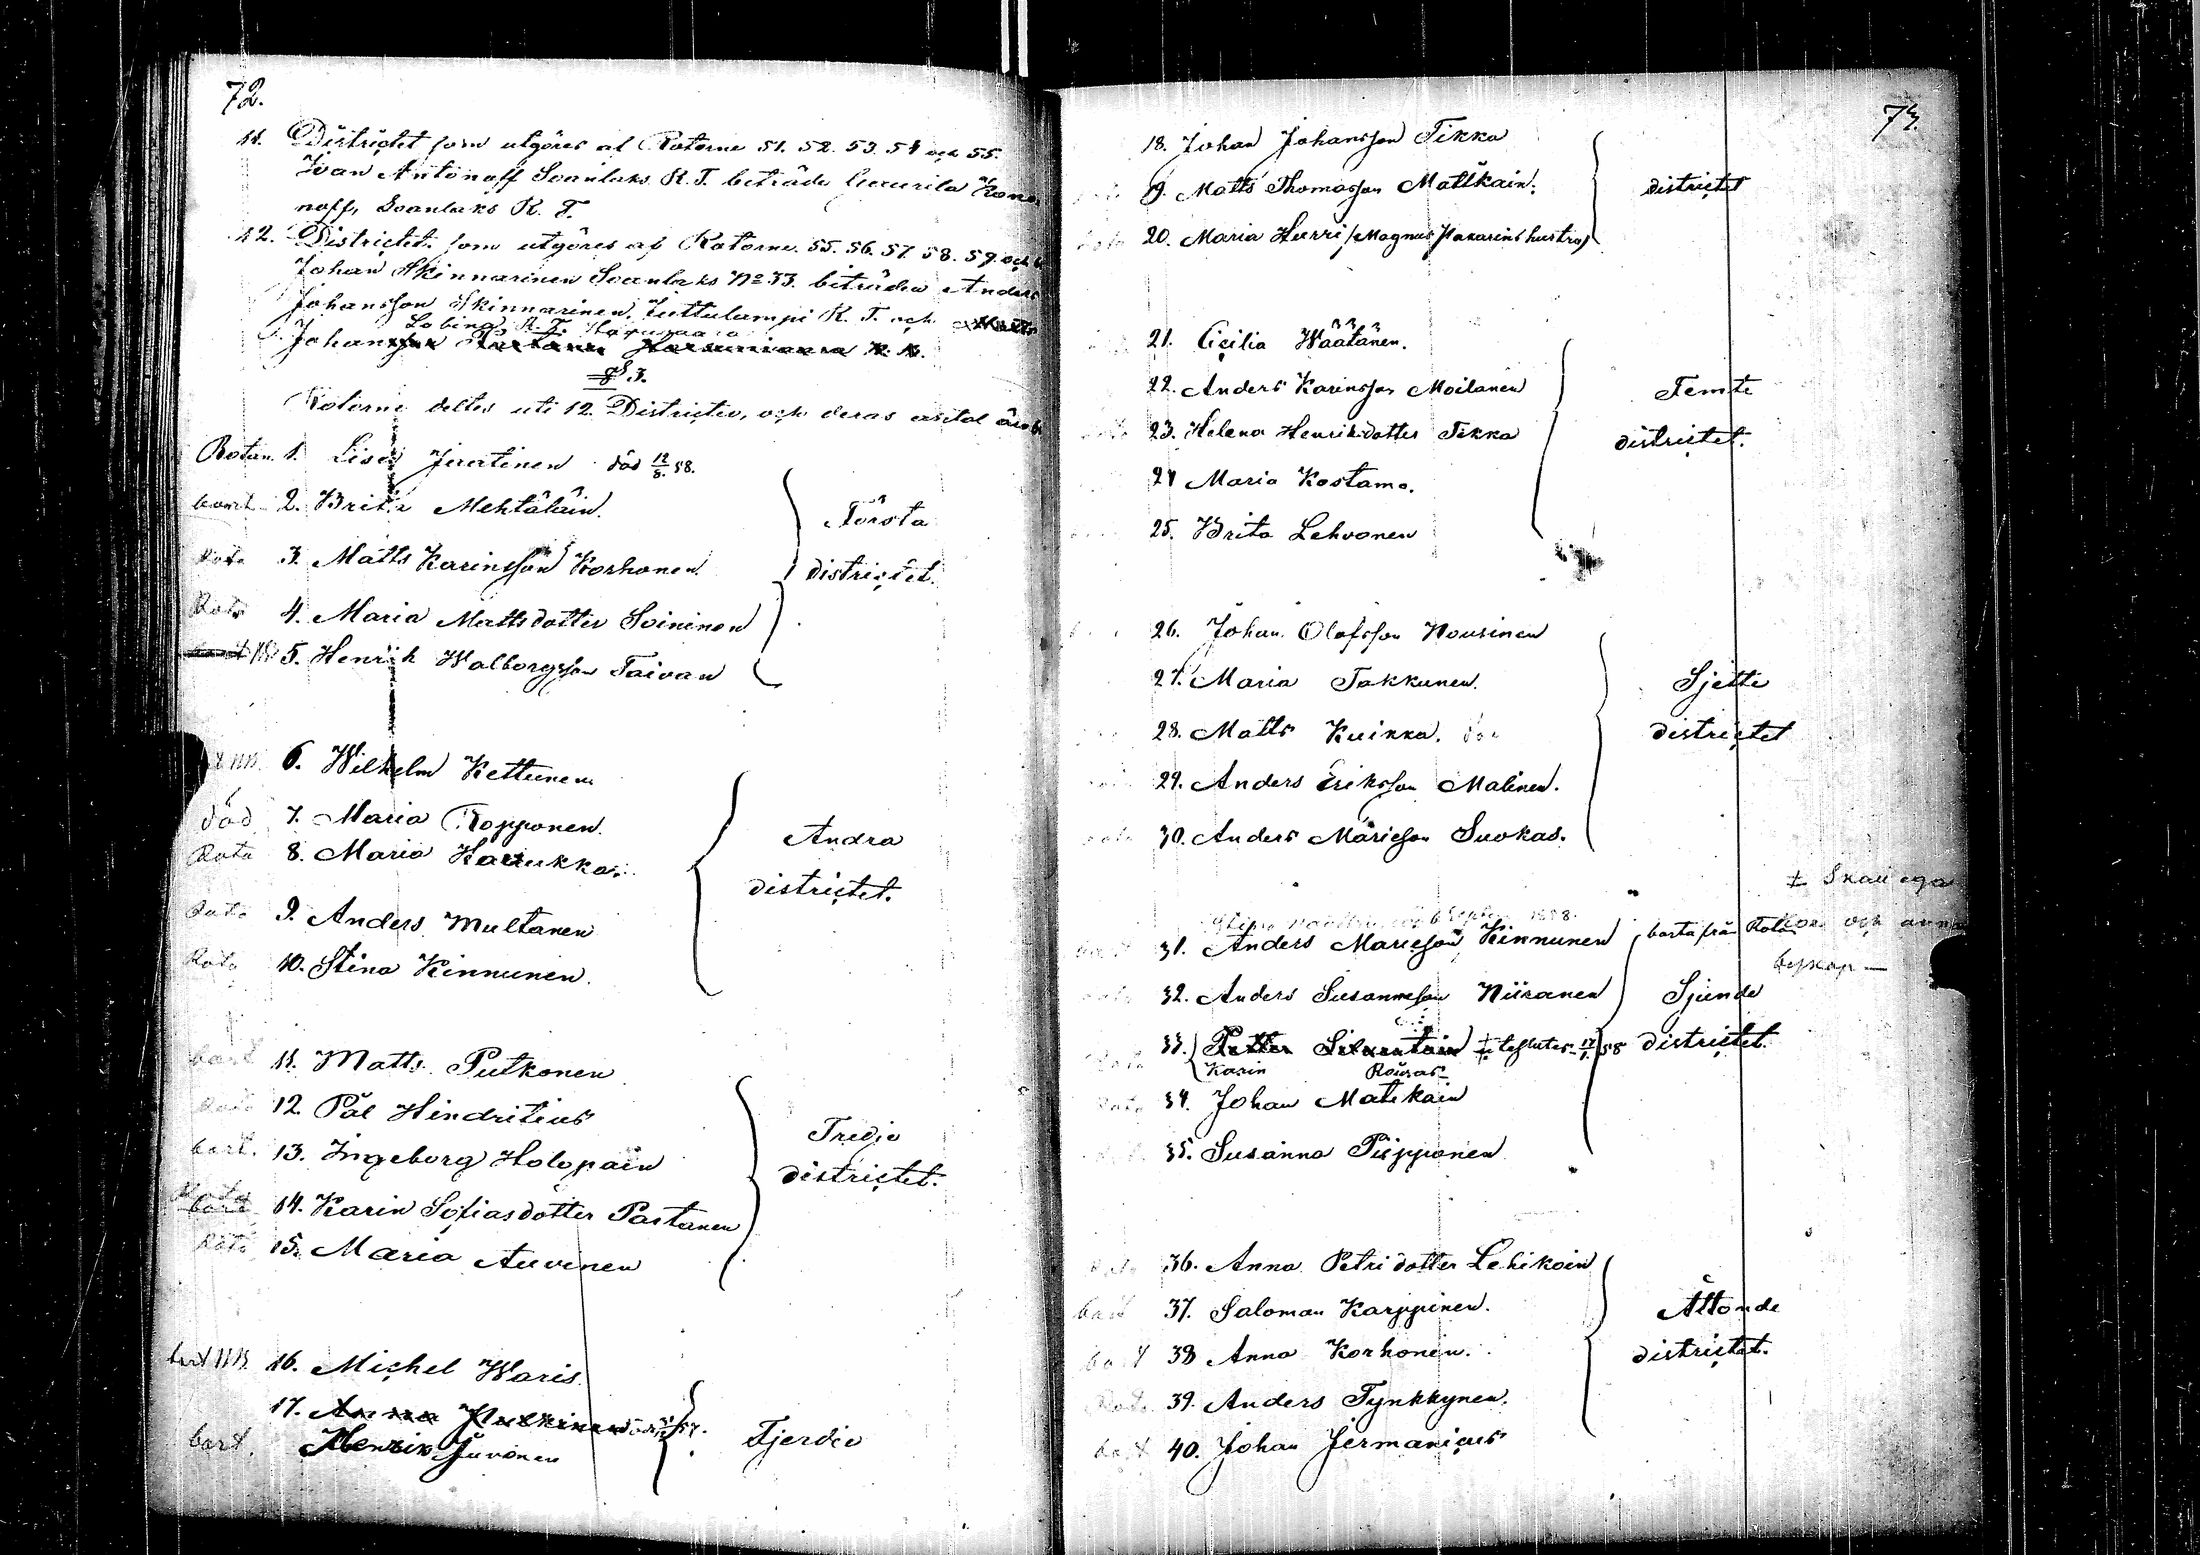 72.
11. Districtet som utgöres af Rotorne 51. 52. 53. 54 och 55.
Ivan Antonoff Soanlaks R. T. beträde Gavrila Kono
noff, Soanlaks R. T.
12. Districtet som utgöres af Rotorne 55. 56. 57. 58. 59. och
Johan Skinnarinen Soanlaks No 33. biträden Anders
Johansson Skinnarinen, Juttulampi R. T. och Matts
Johansson
§ 3.
Rotorne deltes uti 12. Districter, och deras antal äro
Rotan 1. Lisa Juntinen död 12/8. 58.
bort 2. Brita Mehtäläin.
Rota 3. Matts Karinsson Korhonen.
Rota 4. Maria Mattsdotter Soininen
5. Henrik Walborgsson Taivan
Första
districtet.
6. Wilhelm Kettunen
död 7. Maria Ropponen.
Rota 8. Maria Haukka
Rota 9. Anders Multanen
Rota 10. Stina Kinnunen.
Andra
districtet.
bort 11. Matts Putkonen
Rota 12. Pål Hindritius
bort. 13. Ingeborg Holopain
Rota bort 14. Karin Sofiasdotter Partanen
Rota 15. Maria Auvinen
Tredje
districtet.
bort 16. Michel Waris.
17. Anna
bort. Henrik Juvonen
Fjerde
73.
18. Johan Johansson Tikka
19. Matts Thomasson Matikain.
Rota 20. Maria Hurri /Magnus Pakarins hustru/
districtet
21. Cicilia Wäätänen.
22. Anders Karinsson Moilanen
23. Helena Henriksdotter Tikka
24 Maria Kostamo.
25. Brita Lehvonen
Femte
districtet.
26. Johan Olofsson Nousinen
27. Maria Takkunen.
28. Matts Kuikka.
29. Anders Eriksson Malinen.
Rota 30. Anders Mariesson Suokas.
Sjette
districtet
± Skall ega
Kor och
bort 31. Anders Mariesson Kinnunen borta från Rotan
Rota 32. Anders Susannesson Niiranen
Sjunde
districtet.
Rota 33. Petter
Karin Rouvas
Rota 34. Johan Matikain
35. Susanna Pisponen
Rota 36. Anna Petridotter Lehikoin
bort 37. Saloman Karppinen.
bort 38 Anna Korhonen.
Rota 39. Anders Tynkkynen.
bort 40. Johan Jermanius
Åttonde
districtet.